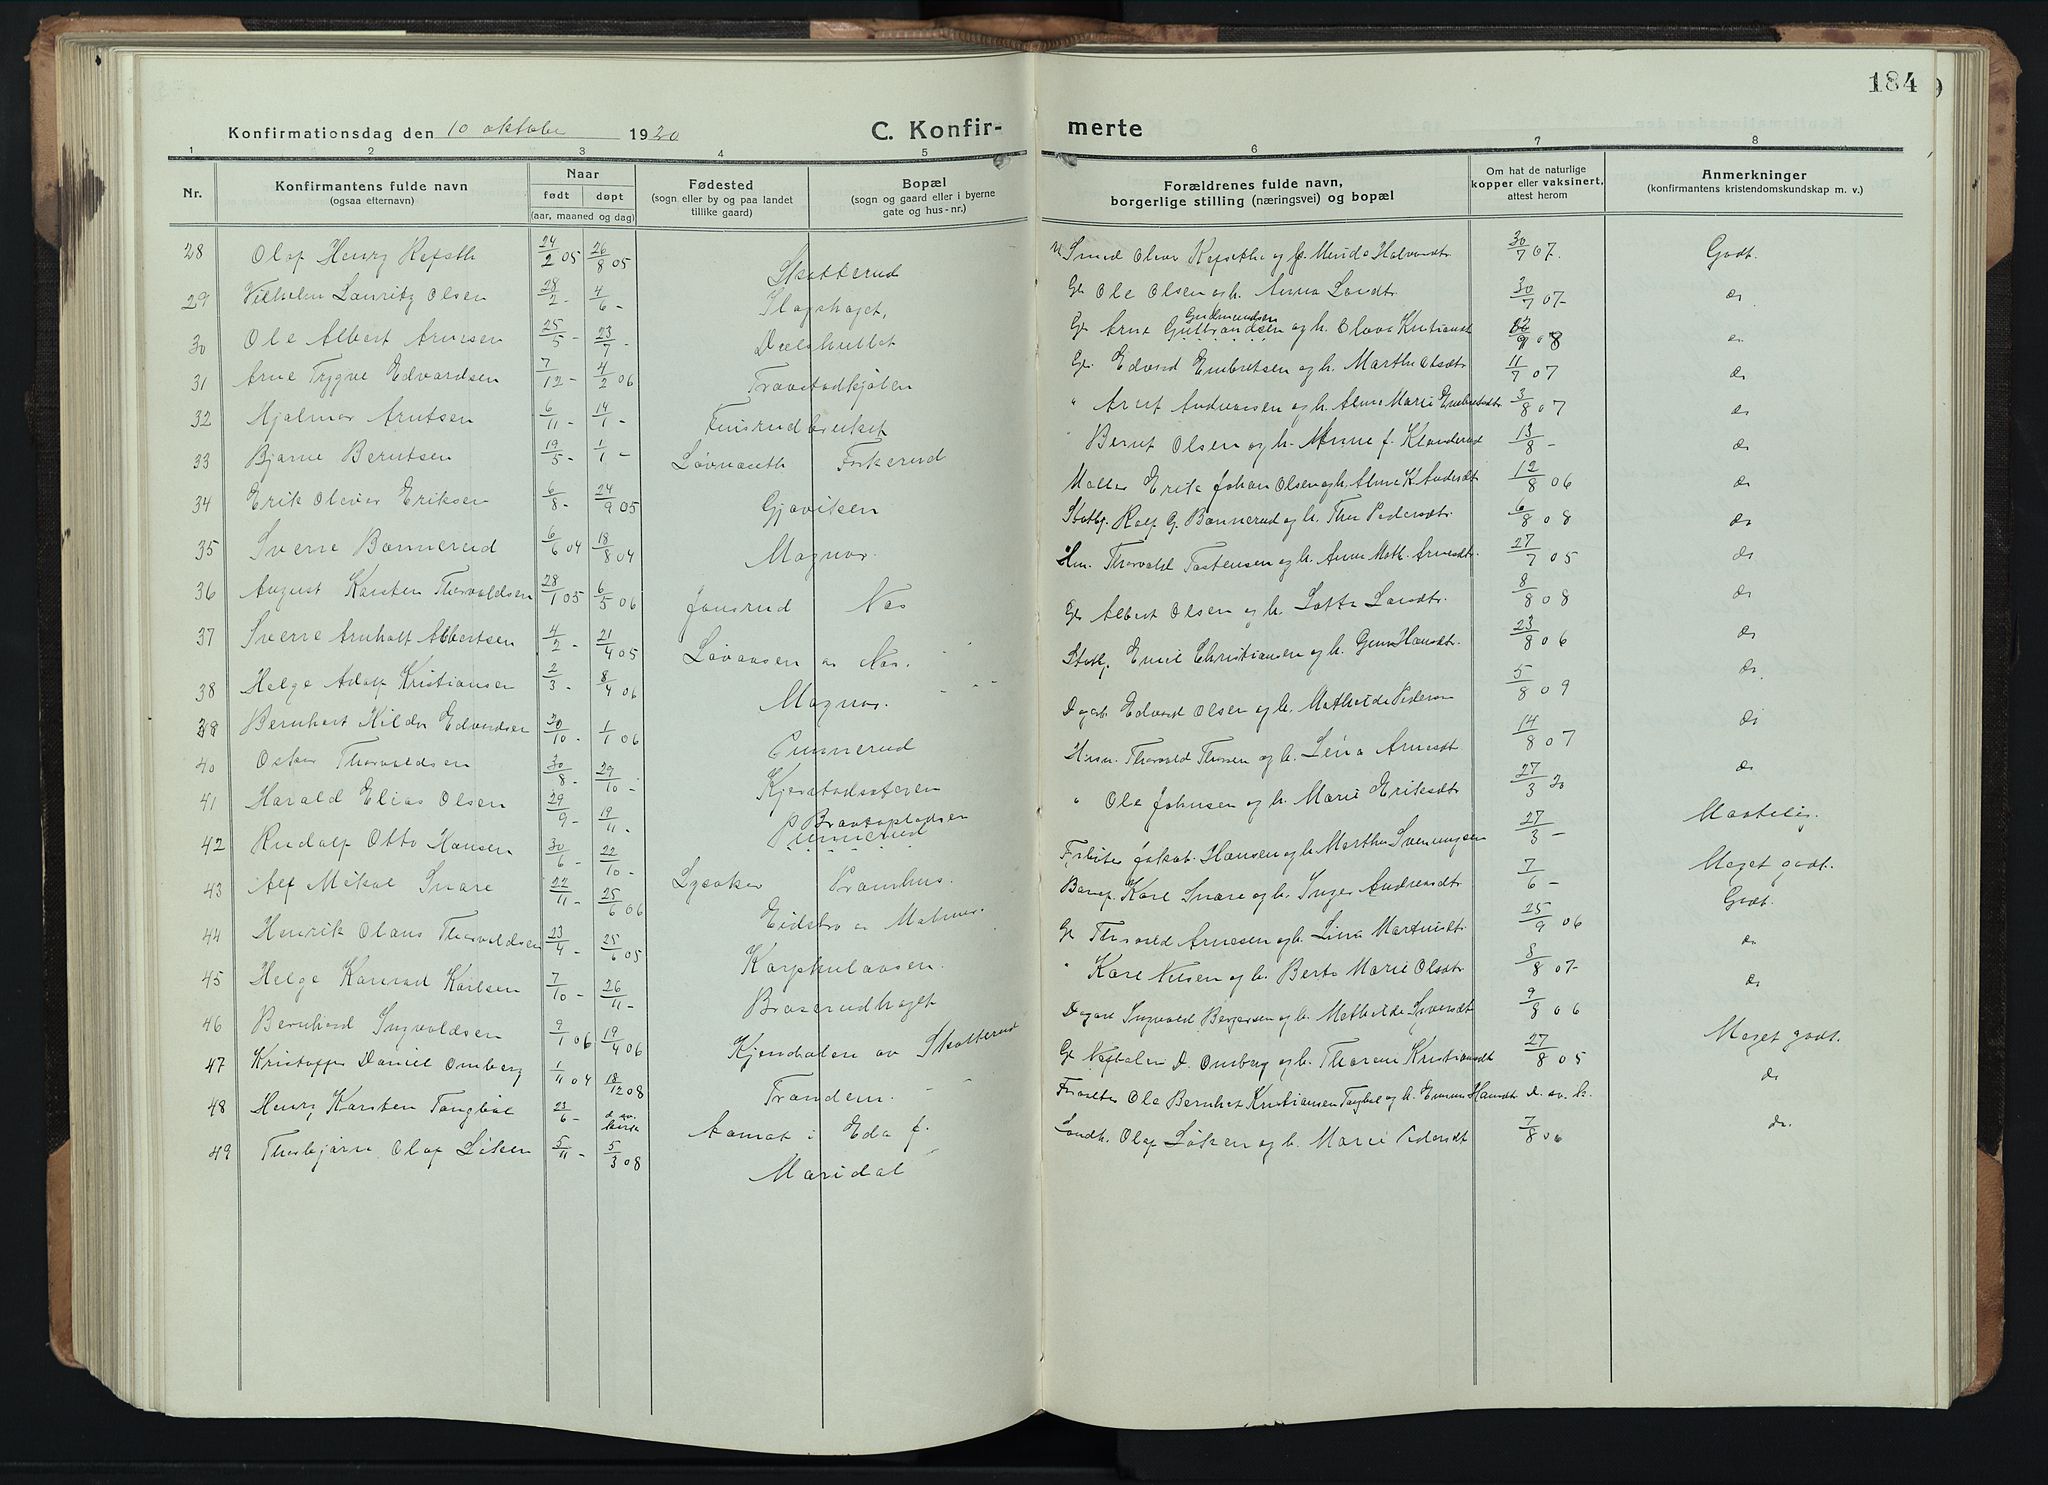 184
Konfirmationsdag den 10 oktober 1920 C. Konfir- merte
1 2 3 4 5 6 7 8
Nr. Konfirmantens fulde navn (ogsaa efternavn) Naar født døpt (aar, maaned og dag) Fødested (sogn eller by og paa landet tillike gaard) Bopæl (sogn og gaard eller i byerne gate og hus-nr.) Forældrenes fulde navn, borgerlige stilling (næringsvei) og bopæl Om hat de naturlige kopper eller vaksinert, attest herom Anmerkninger (konfirmantens kristendomskundskap m. v.)
28 Olaf Henry Refseth 24/2 05 26/8 05 Skotterud Smed Oliver Refseth og h. 30/7 07. Godt.
29 Vilhelm Lauritz Olsen 28/2 - 4/6 - Slagshaget, Gb Ole Olsen og h. Anna Larsdtr 30/7 07- do
30 Ole Albert Arnesen 25/5 - 23/7 - Gb Arne Gulbrandsen Gudmundsen og h. Olava Kristiansdt 08 do
31 Arne Trygve Edvardsen 7/12 - 4/2 06 Travstadkjølen Gb. Edvard Embretsen og h. Marthe Olsdtr 11/7 07 do
32 Hjalmar Arntsen 6/11 - 14/1 - " Arnt Andreassen og h. Anne Marie Embretsdtr 3/8 07 do
33 Bjarne Berntsen 19/5 - 1/1 - Forkerud " Bernt Olsen og h. Anne f. Klanderud 13/8 - do
34 Erik Oliver Eriksen 6/8 - 24/9 05 Gjøvilsen Møller Erik Johan Olsen og h. Anne K. Andersdt 12/8 06 do
35 Sverre Bannerud 6/6 04 18/8 04 Magnor. Rolf G. Bannerud og h. Thea Pedersdt. 6/8 08 do
36 August Karsten Thorvaldsen 28/1 05 6/5 06 Jonsrud Næs Hm. Thorvald Tostensen og h. Anne Math. Arnesdt. 27/7 05 do
37 Sverre Arnholt Albertsen 4/2 - 21/4 05 Løvaasen Næs. " Gb Albert Olsen og h. Lotta Larsdtr. 8/8 08 do
38 Helge Adolf Kristiansen 2/3 - 8/4 06 Magnor. " " " Emil Christiansen og h. Hansdtr. 23/8 06 do
39 Bernhart Hildor Edvardsen 20/10 - 1/1 06 Dagarb. Edvard Olsen og h. Mathilde Pedersen 5/8 09 do
40 Oskar Thorvaldsen 30/8 - 29/10 - Hm. Thorvald Thoresen og h. Lina Arnesdt 14/8 07 do
41 Harald Elias Olsen 29/9 - 19/11 - " Ole Johnsen og h. Marie Eriksdtr 27/3 20 do
42 Rudolf Otto Hansen 30/6 - 22/10 - Jakob Hansen og h. Marthe Svenningsen 27/3 - Maatelig.
43 Alf Mikal Snare 22/11 - 25/6 06 Lysaker Pramhus. Banef. Karl Snare og h. Inger Andreasdtr 7/6 - Meget godt.
44 Henrik Olaus Thorvaldsen 23/4 - 25/6 05 Eidsbro Gb Thorvald Arnesen og h. Lina Martinsdt. 25/9 06 Godt.
45 Helge Konrad Karlsen 7/10 - 26/11 - Karpkulaasen. " Karl Nilsen og h. Berte Marie Olsdtr 3/8 07- do
46 Bernhard Ingvaldsen 9/1 06 19/4 06 Braserudhaget Dagarb Ingvald Bergersen og h. Mathilde Iversdt 9/8 06 do
47 Kristoffer Daniel Omberg 1/11 04 18/12 08 Kjendalen av Skotterud Gb D. Omberg og h. Thorine Kristiansdt 27/8 05 Meget godt.
48 Henry Karsten Tangbøl 23/6 - d. sv. kirke Trandem. " " Ole Bernhat Kristiansen Tangbøl og h. Emma Hansdt d. sv. k. do
49 Thorbjørn Olaf Løken 5/11 - 5/3 08 Aamot i Eda f. Maridal Landh. Olaf Løken og h. Marie Pedersdt 7/8 06 do.